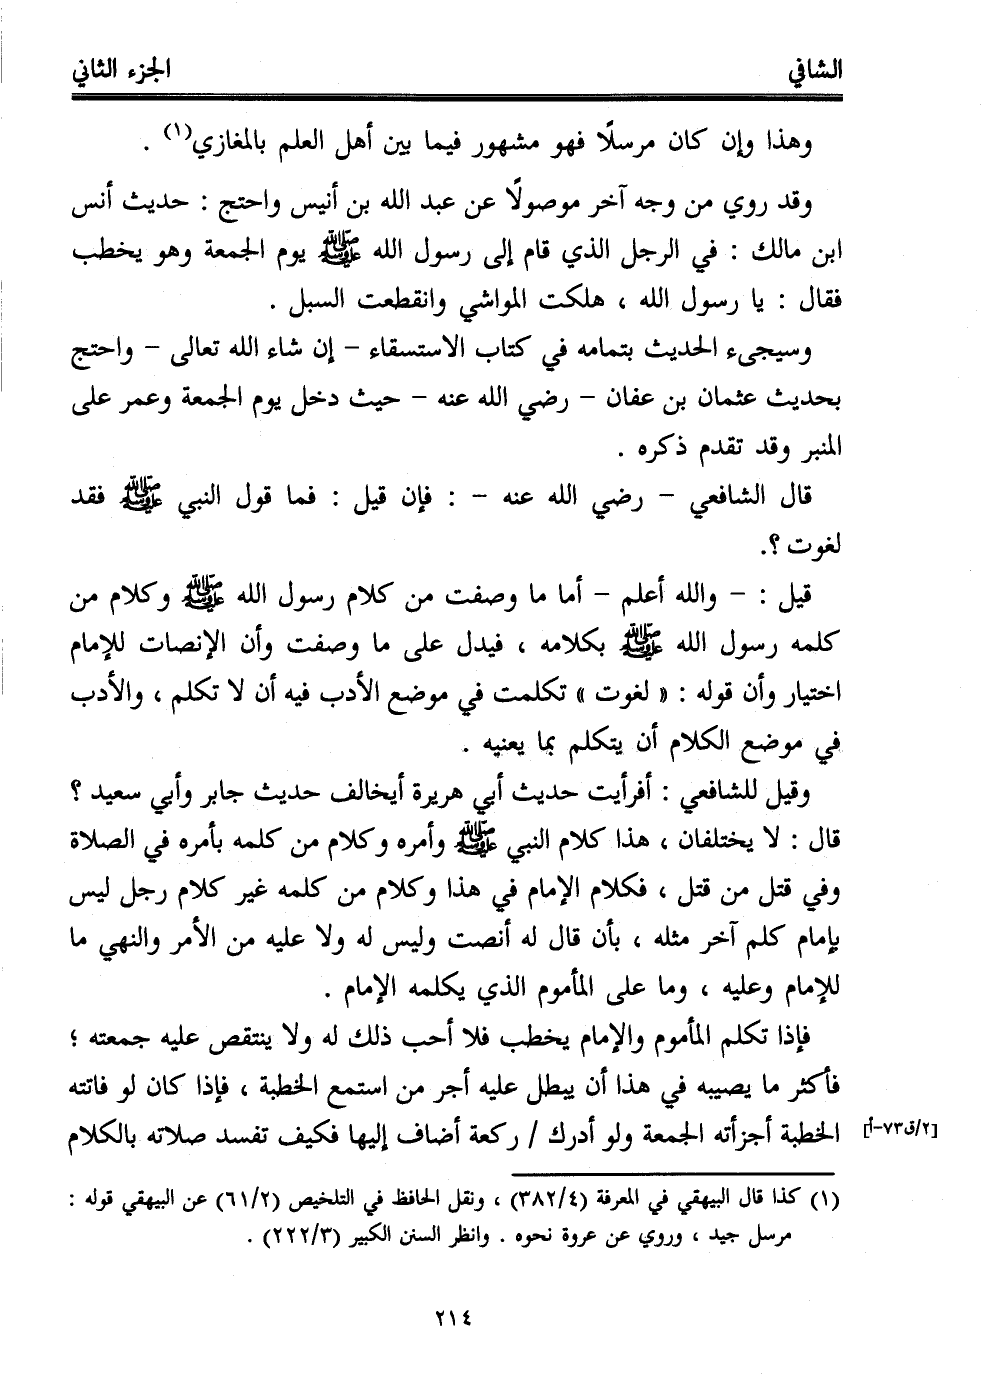 الشافي الجزء الثاني
وهذا وإن كان مرسلًا فهو مشهور فيما بين أهل العلم بالمغازي(١) .
وقد روي من وجه آخر موصولًا عن عبد الله بن أنيس واحتج : حديث أنس
ابن مالك : في الرجل الذي قام إلى رسول الله ﷺ يوم الجمعة وهو يخطب
فقال : يا رسول الله ، هلكت المواشي وانقطعت السبل .
وسيجيء الحديث بتمامه في كتاب الاستسقاء – إن شاء الله تعالى – واحتج
بحديث عثمان بن عفان – رضي الله عنه – حيث دخل يوم الجمعة وعمر على
المنبر وقد تقدم ذكره .
قال الشافعي – رضي الله عنه – : فإن قيل : فما قول النبي ﷺ فقد
لغوت ؟.
قيل : – والله أعلم – أما ما وصفت من كلام رسول الله ﷺ وكلام من
كلمه رسول الله ﷺ بكلامه ، فيدل على ما وصفت وأن الإنصات للإمام
اختيار وأن قوله : « لغوت » تكلمت في موضع الأدب فيه أن لا تكلم ، والأدب
في موضع الكلام أن يتكلم بما يعنيه .
وقيل للشافعي : أفرأيت حديث أبي هريرة أيخالف حديث جابر وأبي سعيد ؟
قال : لا يختلفان ، هذا كلام النبي ﷺ وأمره وكلام من كلمه بأمره في الصلاة
وفي قتل من قتل ، فكلام الإمام في هذا وكلام من كلمه غير كلام رجل ليس
بإمام كلم آخر مثله ، بأن قال له أنصت وليس له ولا عليه من الأمر والنهي ما
للإمام وعليه ، وما على المأموم الذي يكلمه الإمام .
فإذا تكلم المأموم والإمام يخطب فلا أحب ذلك له ولا ينتقص عليه جمعته ؛
فأكثر ما يصيبه في هذا أن يبطل عليه أجر من استمع الخطبة ، فإذا كان لو فاتته
الخطبة أجزأته الجمعة ولو أدرك / ركعة أضاف إليها فكيف تفسد صلاته بالكلام
[٢/ق٧٣-أ]
(١) كذا قال البيهقي في المعرفة (٣٨٢/٤) ، ونقل الحافظ في التلخيص (٦١/٢) عن البيهقي قوله :
مرسل جيد ، وروي عن عروة نحوه . وانظر السنن الكبير (٢٢٢/٣) .
٢١٤